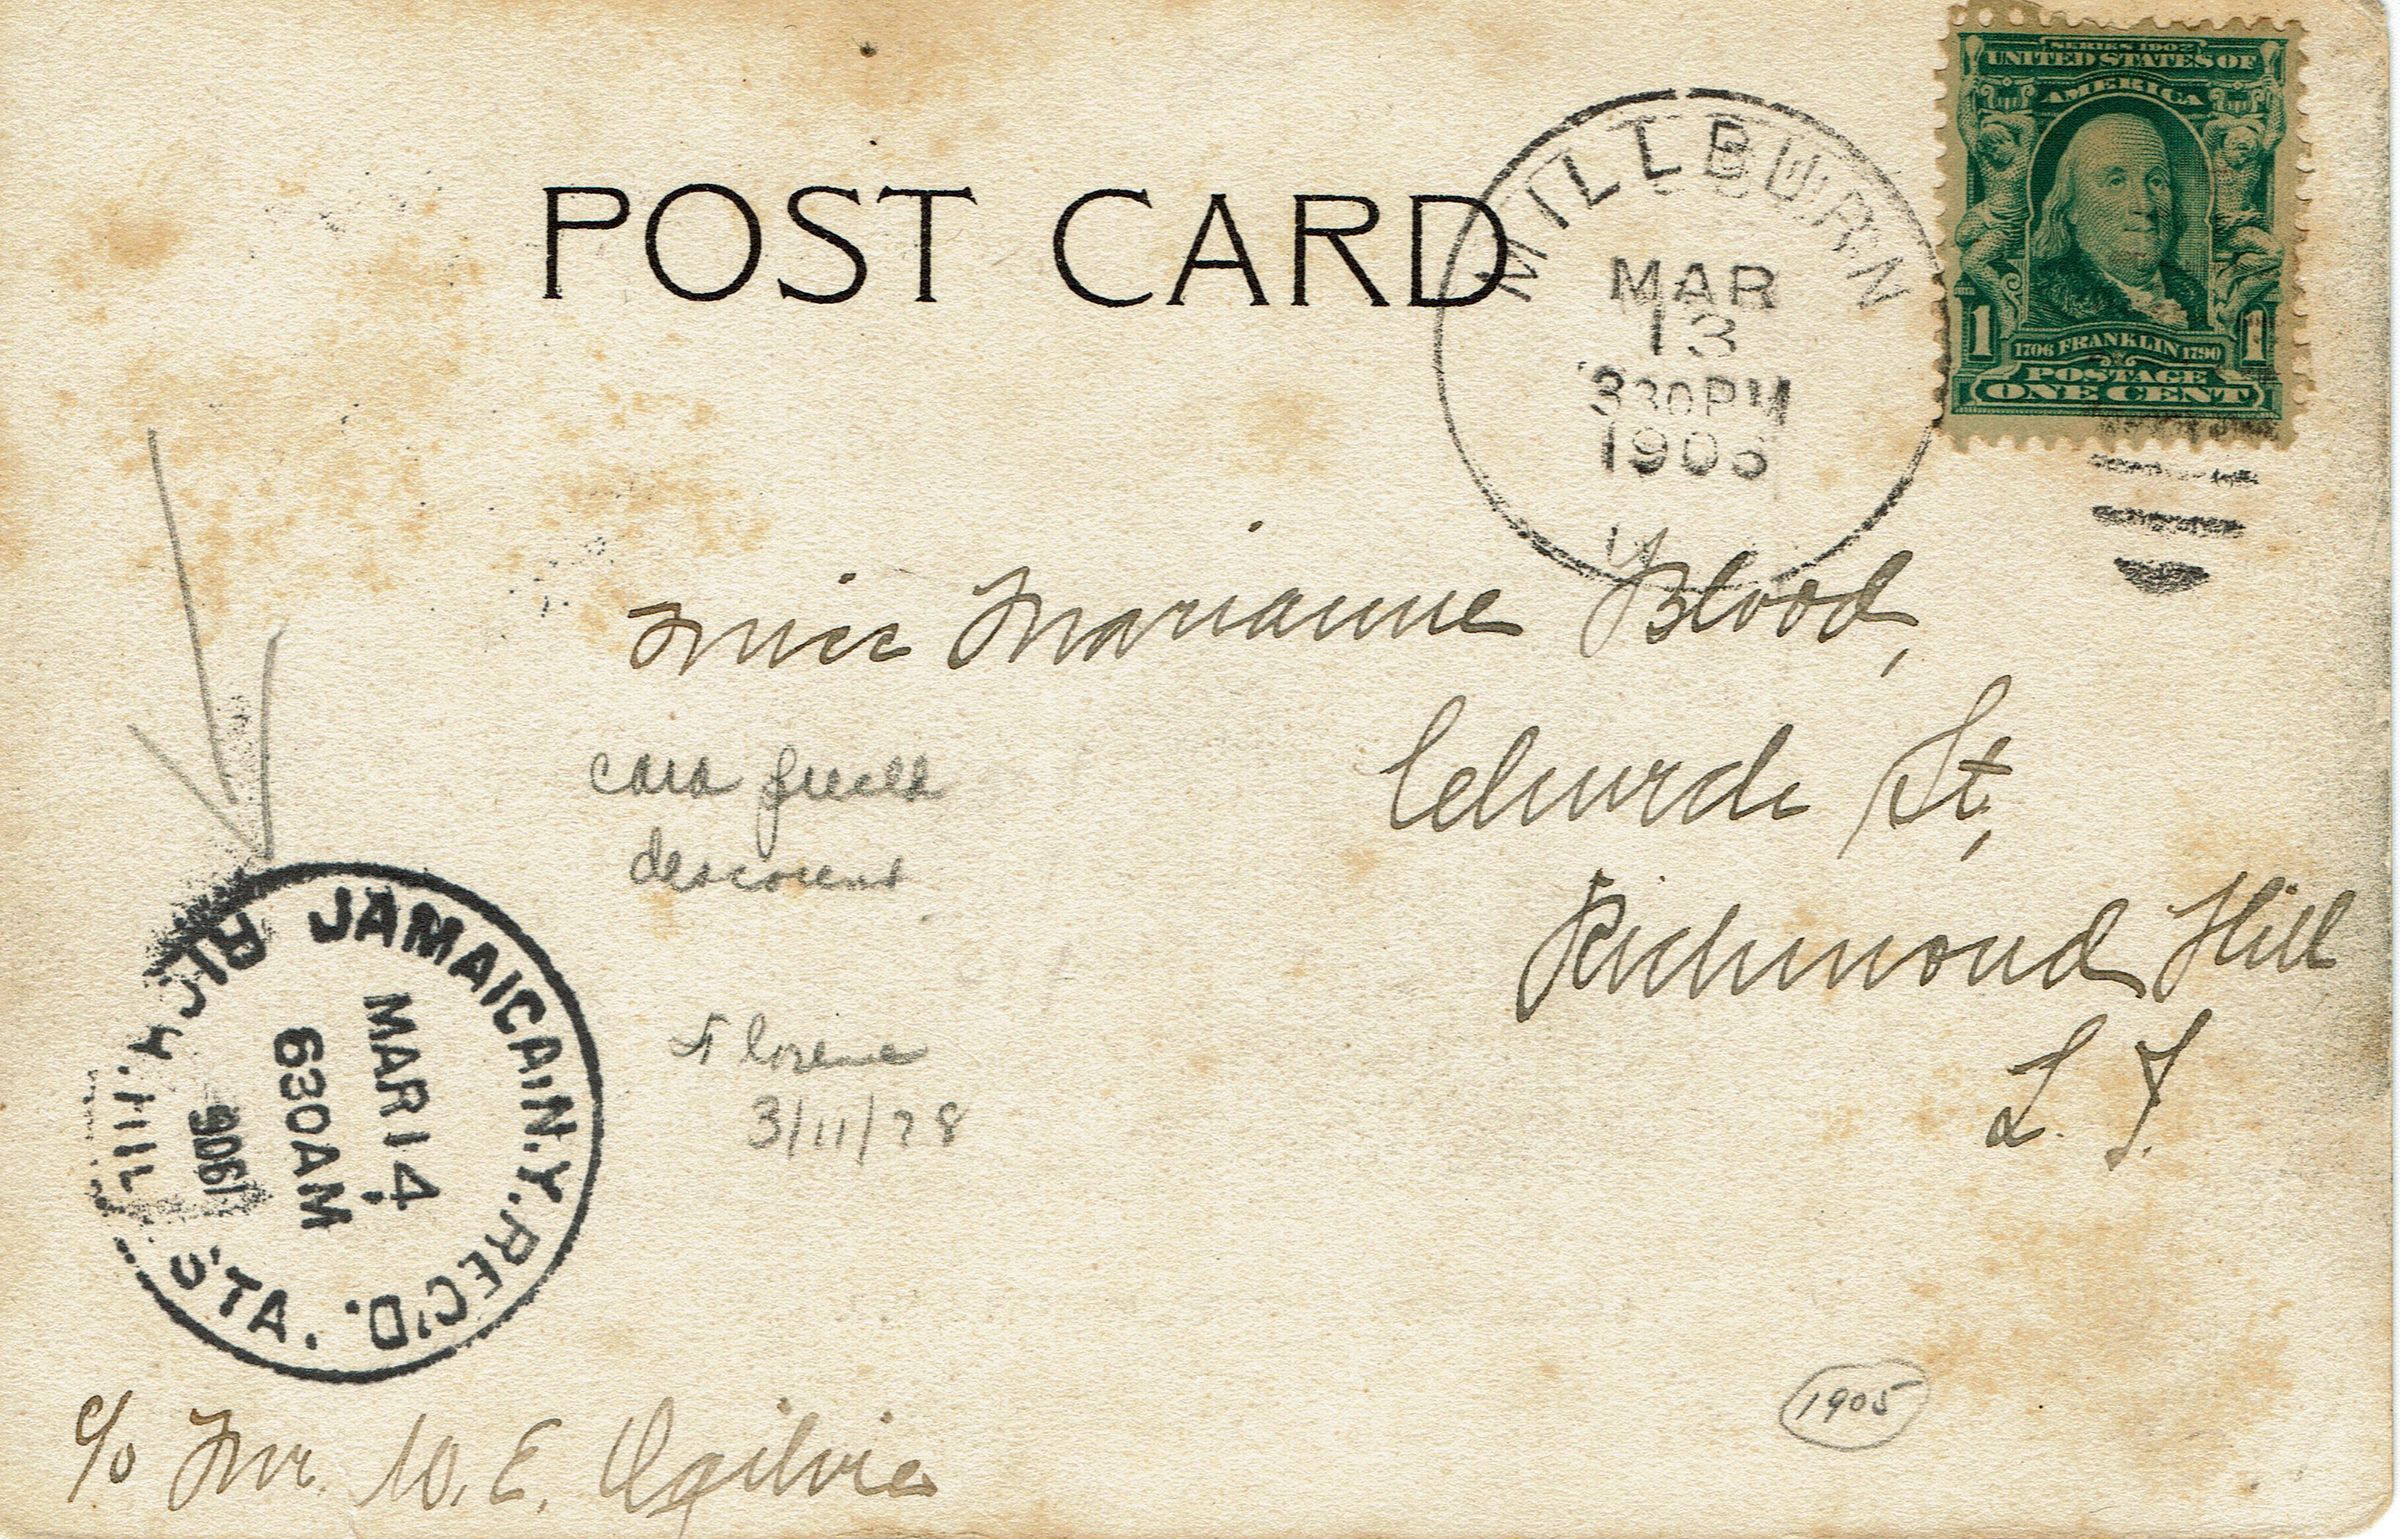 POST CARD
MILLBURN
MAR
13
330PM
190
SERIES 1902
UNITED STATES OF
AMERICA
1 1706 FRANKLIN 1790 1
POSTAGE
ONE CENT
Miss Marianne Blood,
Church St,
Richmond Hill
L. I.
Florence
3/11/78
JAMAICA, N.Y. REC'D.
MAR 14
630AM
1906
STA.
1905
c/o Mr. W. E. Ogilvie